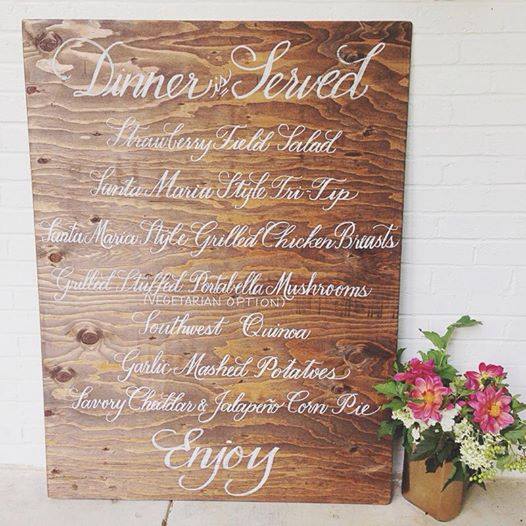 Dinner is Served
Strawberry Field Salad
Santa Maria Style Tri-Tip
Santa Maria Style Grilled Chicken Breasts
Grilled Stuffed Portabella Mushrooms
(VEGETARIAN OPTION)
Southwest Quinoa
Garlic Mashed Potatoes
Savory Cheddar & Jalapeño Corn Pie
Enjoy